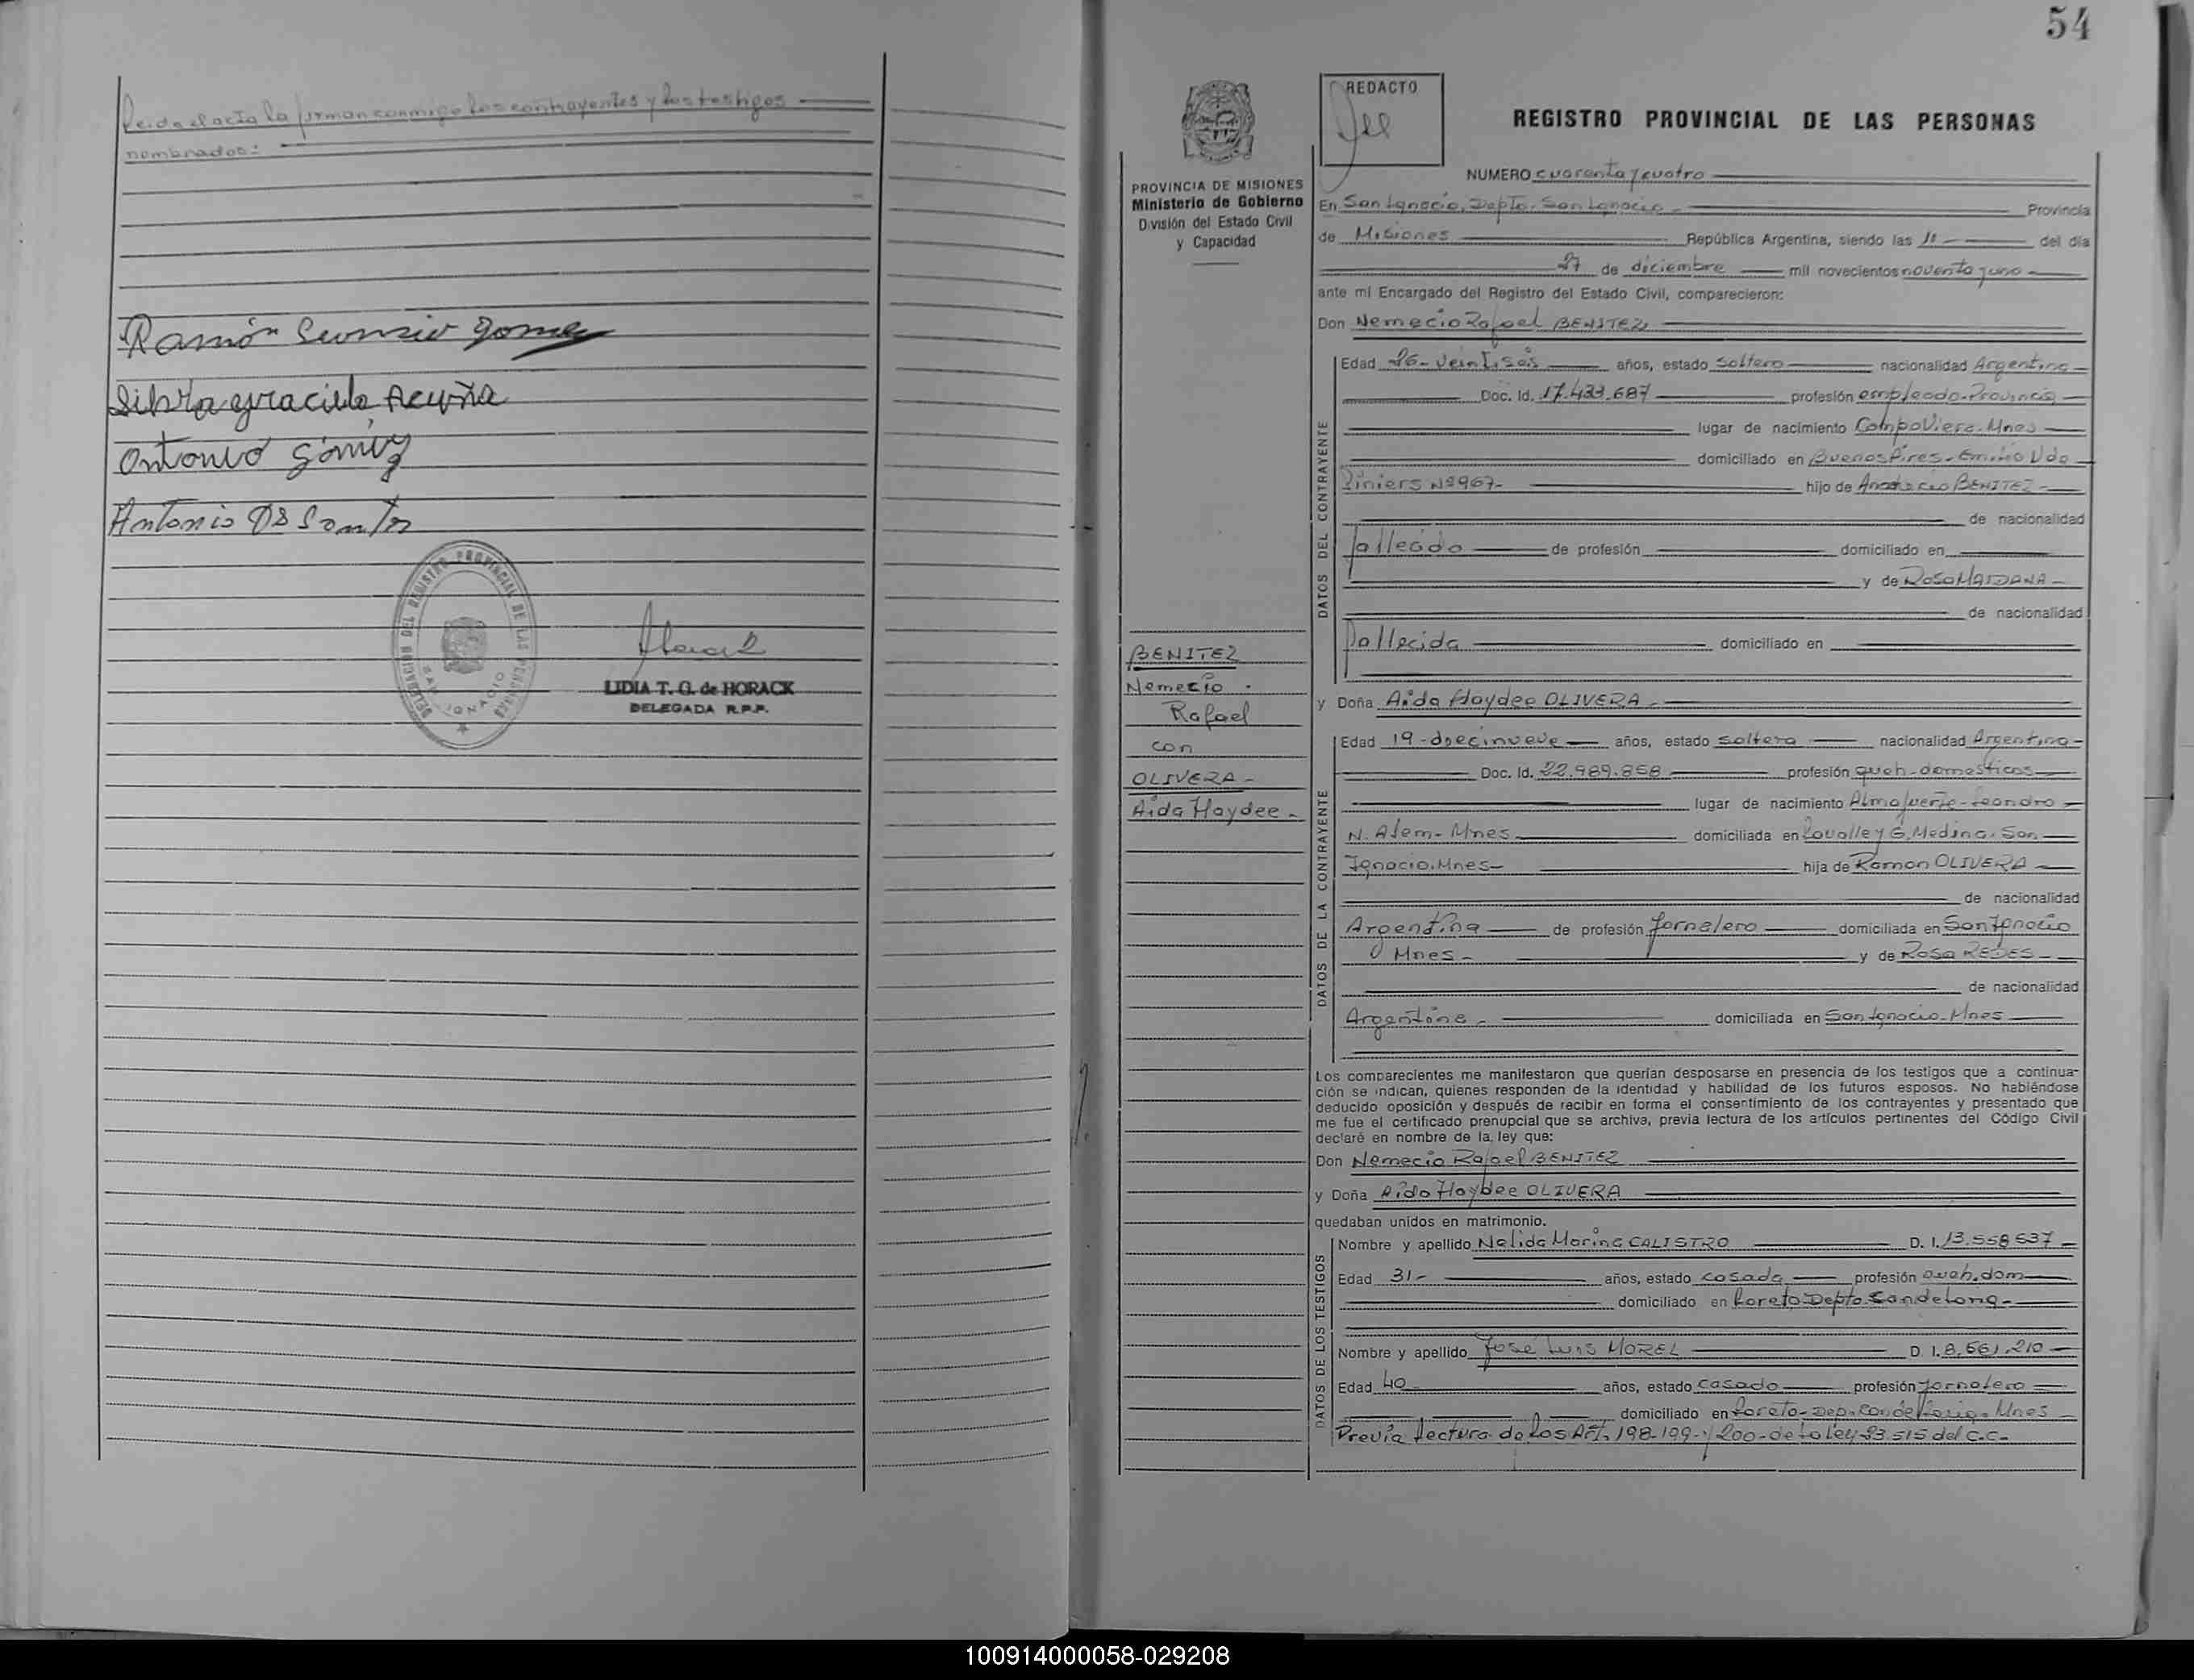 Leida el acta la firman conmigo los contrayentes y los testigos
nombrados:
Ramón Gomez
Silvia Graciela Acuña
Antonio Gómez
Antonio
DELEGACION DEL REGISTRO PROVINCIAL DE LAS PERSONAS
SAN IGNACIO
LIDIA T. G. de HORACK
DELEGADA R.P.P.
54
REDACTO
REGISTRO PROVINCIAL DE LAS PERSONAS
PROVINCIA DE MISIONES
Ministerio de Gobierno
División del Estado Civil
y Capacidad
NUMERO cuarenta y cuatro
En San Ignacio, Depto. San Ignacio Provincia
de Misiones República Argentina, siendo las 11 del día
27 de diciembre mil novecientos noventa y uno
ante mi Encargado del Registro del Estado Civil, comparecieron:
Don Nemecio Rafael BENITEZ
DATOS DEL CONTRAYENTE
Edad 26-veintiseis años, estado soltero nacionalidad Argentina
Doc. Id. 17.433.687 profesión empleado-Provincia
lugar de nacimiento Campo Viera-Mnes
domiciliado en Buenos Aires-Emilio Vda
Piniers Nº 967- hijo de BENITEZ
de nacionalidad
fallecido de profesión domiciliado en
y de Rosa MAIDANA
de nacionalidad
fallecida domiciliado en
BENITEZ
Nemecio
Rafael
con
OLIVERA-
Aida Haydee-
y Doña Aida Haydee OLIVERA
DATOS DE LA CONTRAYENTE
Edad 19-diecinueve años, estado soltera nacionalidad Argentina
Doc. Id. 22.989.858 profesión queh-domesticos
lugar de nacimiento Almafuerte-Leandro
N. Alem-Mnes domiciliada en Lavalle y G. Medina-San
Ignacio.Mnes- hija de Ramon OLIVERA
de nacionalidad
Argentina de profesión Jornalero domiciliada en San Ignacio
Mnes- y de Rosa REDES
de nacionalidad
Argentina- domiciliada en San Ignacio-Mnes
Los comparecientes me manifestaron que querían desposarse en presencia de los testigos que a continua-
ción se indican, quienes responden de la identidad y habilidad de los futuros esposos. No habiéndose
deducido oposición y después de recibir en forma el consentimiento de los contrayentes y presentado que
me fue el certificado prenupcial que se archiva, previa lectura de los artículos pertinentes del Código Civil
declaré en nombre de la ley que:
Don Nemecio Rafael BENITEZ
y Doña Aida Haydee OLIVERA
quedaban unidos en matrimonio.
DATOS DE LOS TESTIGOS
Nombre y apellido Nelida Marina CALISTRO D. I. 13.558.537
Edad 31- años, estado casada profesión queh.dom
domiciliado en Loreto-Depto.Candelaria-
Nombre y apellido José Luis MOREL D. I. 8.561.210
Edad 40 años, estado casado profesión Jornalero
domiciliado en Loreto-Dep.Candelaria-Mnes
Previa lectura de los Art. 198-199-y 200-de la ley 23.515 del C.C.
100914000058-029208